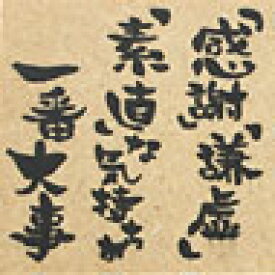 「感謝」「謙虚」
「素直」な気持ちが
一番大事